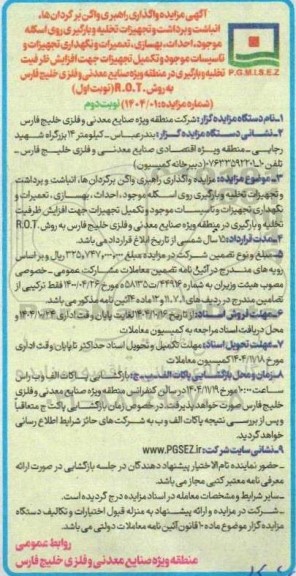 آگهی مزایده واگذاری راهبری واگن برگردان‌ها،
انباشت و برداشت و تجهیزات تخلیه و بارگیری روی اسکله
موجود، احداث، بهسازی، تعمیرات و نگهداری تجهیزات و
تاسیسات موجود و تکمیل تجهیزات جهت افزایش ظرفیت
تخلیه و بارگیری در منطقه ویژه صنایع معدنی و فلزی خلیج فارس
به روش R.O.T (نوبت اول)
(شماره مزایده: ۱۴۰۴/۰۱) نوبت دوم
P.G.M.I.S.E.Z
۱-نام دستگاه مزایده گزار: شرکت منطقه ویژه صنایع معدنی و فلزی خلیج فارس
۲-نشانی دستگاه مزایده گزار: بندرعباس- کیلومتر ۱۴ بزرگراه شهید
رجایی – منطقه ویژه اقتصادی صنایع معدنی و فلزی خلیج فارس-
تلفن (دبیرخانه کمیسیون)
۳-موضوع مزایده: مزایده واگذاری راهبری واگن برگردان‌ها، انباشت و برداشت
و تجهیزات تخلیه و بارگیری روی اسکله موجود، احداث، بهسازی، تعمیرات و
نگهداری تجهیزات و تاسیسات موجود و تکمیل تجهیزات جهت افزایش ظرفیت
تخلیه و بارگیری در منطقه ویژه صنایع معدنی و فلزی خلیج فارس به روش R.O.T
۴-مدت قرارداد: ۱۵ سال شمسی از تاریخ ابلاغ قرارداد می باشد.
۵-مبلغ و نوع تضمین شرکت در مزایده مبلغ ریال و بر اساس
رویه های مندرج در آئین نامه تضمین معاملات مشارکت عمومی - خصوصی
مصوب هیئت وزیران به شماره فقط ترکیبی از
تضامین مندرج در ردیف های ماده ۴ آئین نامه مذکور می باشد.
۶-مهلت فروش اسناد: از تاریخ ۱۴۰۴/۱۰/۱۶ لغایت پایان وقت اداری ۱۴۰۴/۱۰/۲۴ و
محل دریافت اسناد مراجعه به کمیسیون معاملات
۷-مهلت تحویل اسناد: مهلت تکمیل و تحویل اسناد حداکثر تا پایان وقت اداری
مورخ ۱۴۰۴/۱۱/۱۸ کمیسیون معاملات
۸-زمان و محل بازگشایی پاکات الف-ب-ج: بازگشایی پاکات الف و ب راس
ساعت ۱۰:۰۰ مورخ ۱۴۰۴/۱۱/۱۹ در سالن کنفرانس منطقه ویژه صنایع معدنی و فلزی
خلیج فارس صورت خواهد پذیرفت. در خصوص زمان بازگشایی پاکت ج متعاقباً
و پس از بررسی نتیجه پاکات الف و ب به شرکت های حائز شرایط اطلاع رسانی
خواهد گردید.
۹-نشانی سایت شرکت: www.PGSEZ.ir
- حضور نماینده تام الاختیار پیشنهاد دهندگان در جلسه بازگشایی در صورت ارائه
معرفی نامه معتبر کتبی مجاز می باشد.
- سایر شرایط و مشخصات معامله در اسناد مزایده درج گردیده است.
- شرکت در مزایده و ارائه پیشنهاد به منزله قبول اختیارات و تکالیف دستگاه
مزایده گزار موضوع ماده ۱۰ قانون آئین نامه معاملات دولتی می باشد.
روابط عمومی
منطقه ویژه صنایع معدنی و فلزی خلیج فارس